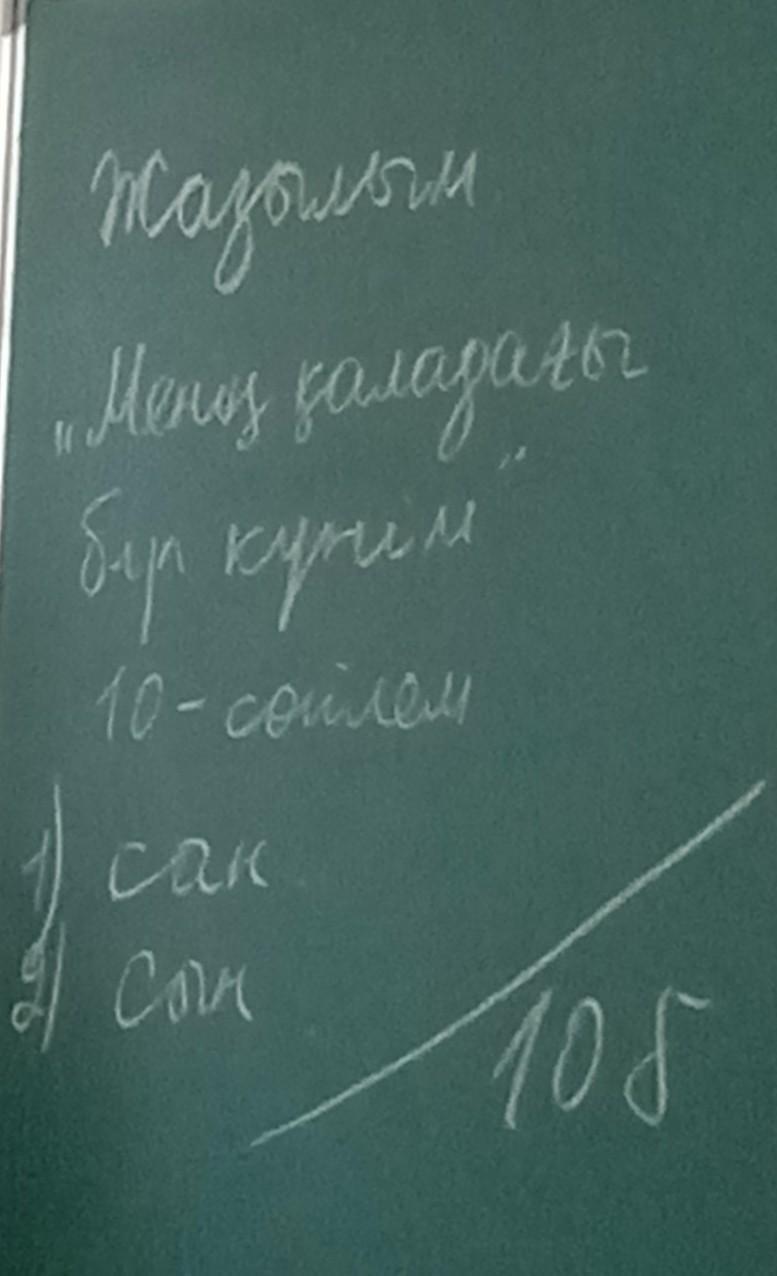 Жазылым
„Менің қаладағы
бір күнім"
10-сөйлем
1) сан
2) сын
10 б